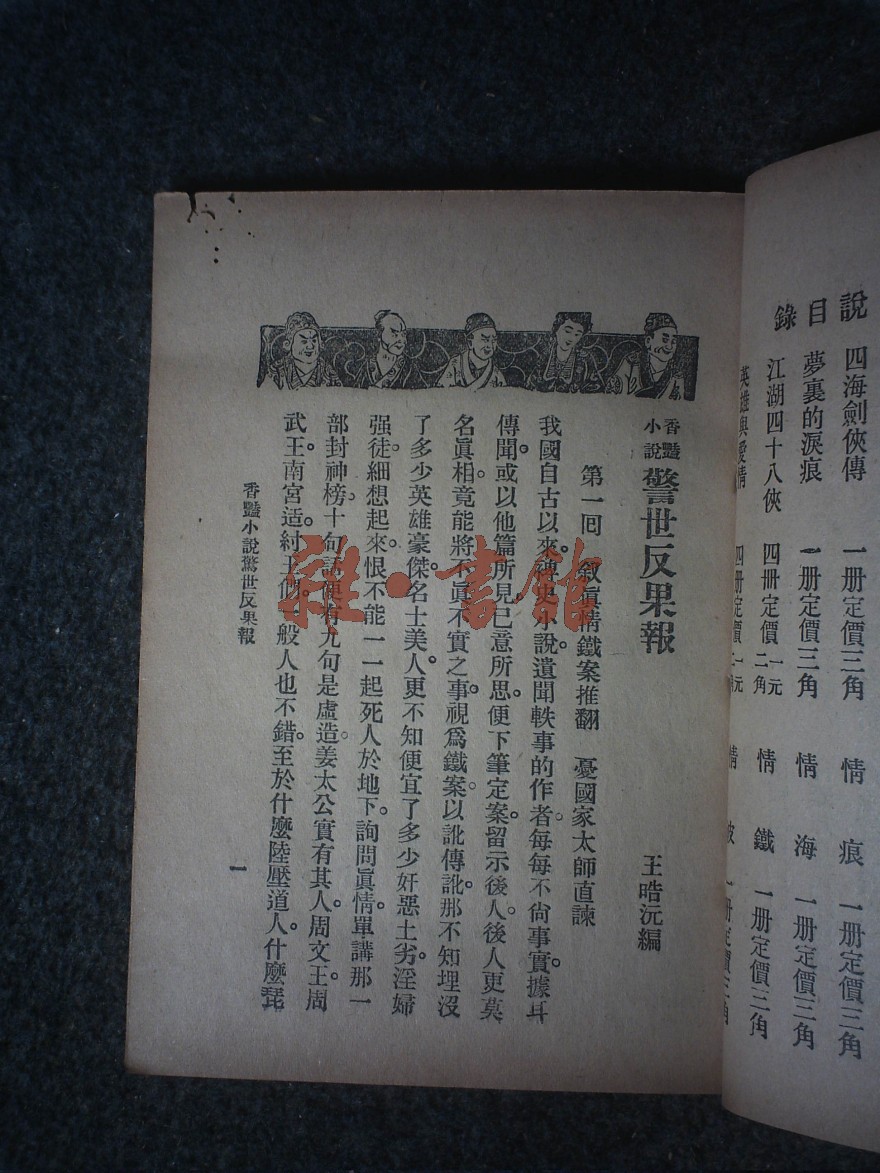 說 四海劍俠傳 一册定價三角 情痕 一册定價三角
目 夢裏的淚痕 一册定價三角 情海 一册定價三角
錄 江湖四十八俠 四冊定價一元二角 情鐵 一册定價三角
英雄與愛情 四册定價一元 情 一册定價三角
香豔小說 警世反果報 王晧沅編
第一回 叙眞情鐵案推翻 憂國家太師直諫
我國自古以來。稗史小說。遺聞軼事的作者。每每不尙事實。據耳
傳聞。或以他篇所見。已意所思。便下筆定案。留示後人。後人更莫
名眞相。竟能將不眞不實之事。視爲鐵案。以訛傳訛。那不知埋沒
了多少英雄豪傑名士美人。更不知便宜了多少奸惡土劣。淫婦
强徒。細想起來。恨不能一一起死人於地下。詢問眞情。單講那一
部封神榜。十句話便有九句是虛造。姜太公實有其人。周文王周
武王南宮适。紂王似。般人也不錯。至於什麽陸壓道人。什麽琵
香豔小說警世反果報
一
雜·書館